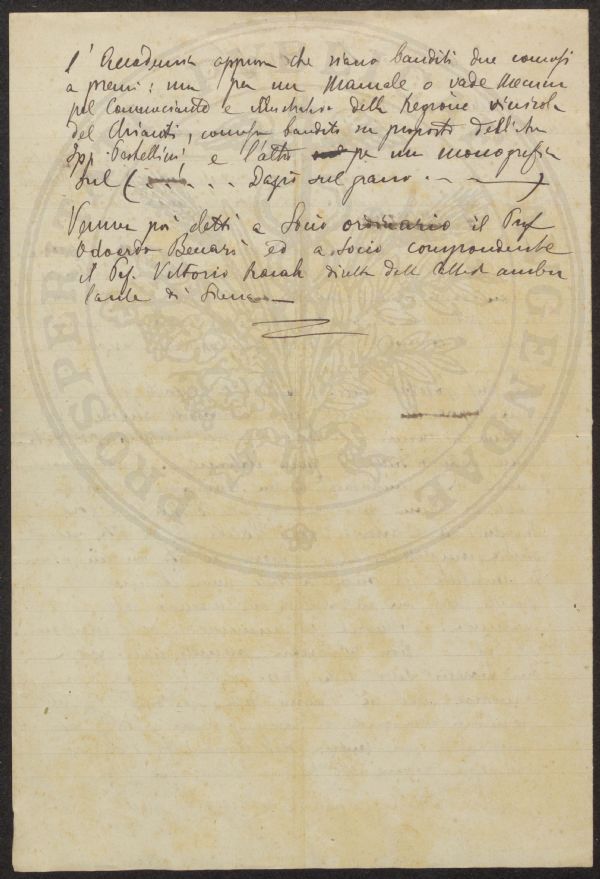 L'Accademia approva che siano banditi due concorsi
a premi: uno per un Manuale o vade Mecum
pel Commerciante e della Regione vinicola
del Chianti, concorso bandito su proposta dell'
Ipp. Pestellini, e l'altro per un monografia
sul (. . . . . Dazio sul grano . . —)
Vennero poi eletti a Socio ordinario il Prof
Odoardo Beccari ed a socio corrispondente
il Pf. Vittorio Racah dirett. della Catted. ambu
lante di Siena —
PROSPERITATI AUGENDAE